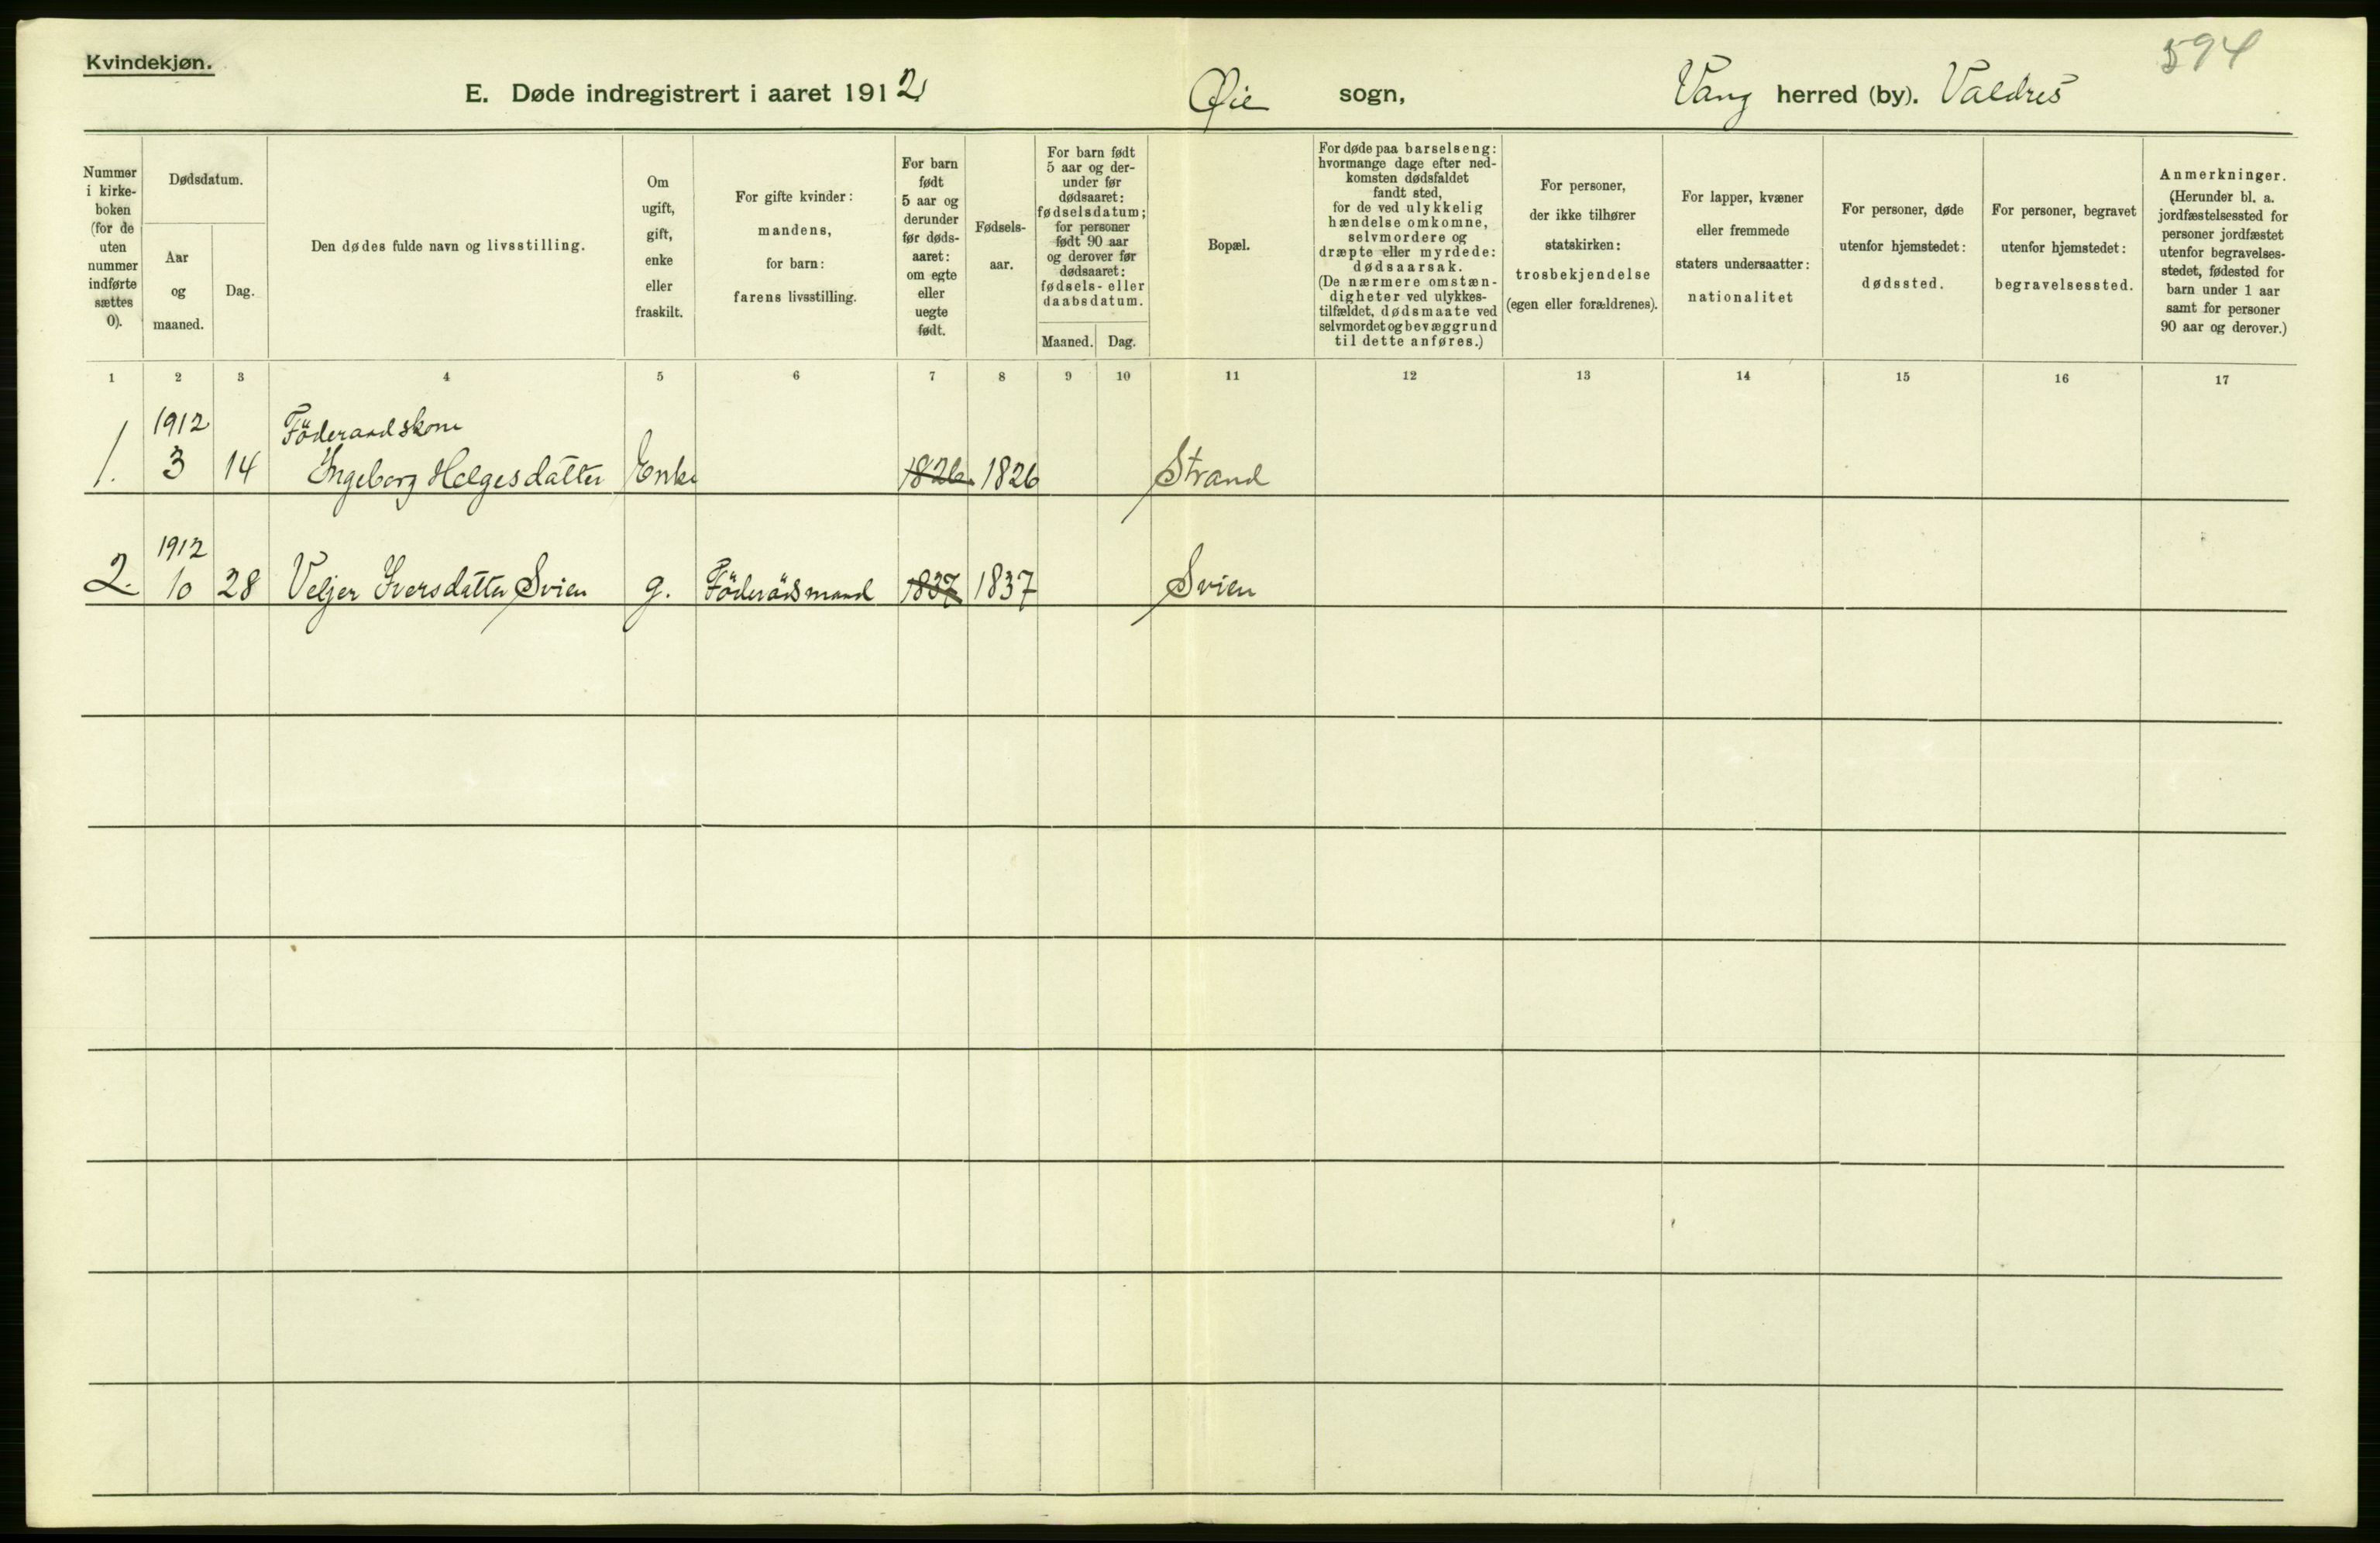 594
Kvindekjøn.
E. Døde indregistrert i aaret 1912 Øie sogn, Vang herred (by). Valdres
Nummer
i kirke-
boken
(for de
uten
nummer
indførte
sættes
0).
Dødsdatum.
Aar
og
maaned.
Dag.
Den dødes fulde navn og livsstilling.
Om
ugift,
gift,
enke
eller
fraskilt.
For gifte kvinder:
mandens,
for barn:
farens livsstilling.
For barn
født
5 aar og
derunder
før døds-
aaret:
om egte
eller
uegte
født.
Fødsels-
aar.
For barn født
5 aar og der-
under før
dødsaaret:
fødselsdatum;
for personer
født 90 aar
og derover før
dødsaaret:
fødsels- eller
daabsdatum.
Maaned. Dag.
Bopæl.
For døde paa barselseng:
hvormange dage efter ned-
komsten dødsfaldet
fandt sted,
for de ved ulykkelig
hændelse omkomne,
selvmordere og
dræpte eller myrdede:
dødsaarsak.
(De nærmere omstæn-
digheter ved ulykkes-
tilfældet, dødsmaate ved
selvmordet og bevæggrund
til dette anføres.)
For personer,
der ikke tilhører
statskirken:
trosbekjendelse
(egen eller forældrenes).
For lapper, kvæner
eller fremmede
staters undersaatter:
nationalitet
For personer, døde
utenfor hjemstedet:
dødssted.
For personer, begravet
utenfor hjemstedet:
begravelsessted.
Anmerkninger.
(Herunder bl. a.
jordfæstelsessted for
personer jordfæstet
utenfor begravelses-
stedet, fødested for
barn under 1 aar
samt for personer
90 aar og derover.)
1 2 3 4 5 6 7 8 9 10 11 12 13 14 15 16 17
1912 Föderaadskone
1. 3 14 Ingeborg Helgesdatter Enke 1826. 1826 Strand
1912
2. 10 28 Veljer Iversdatter Svien g. Föderådsmand 1837 1837 Svien